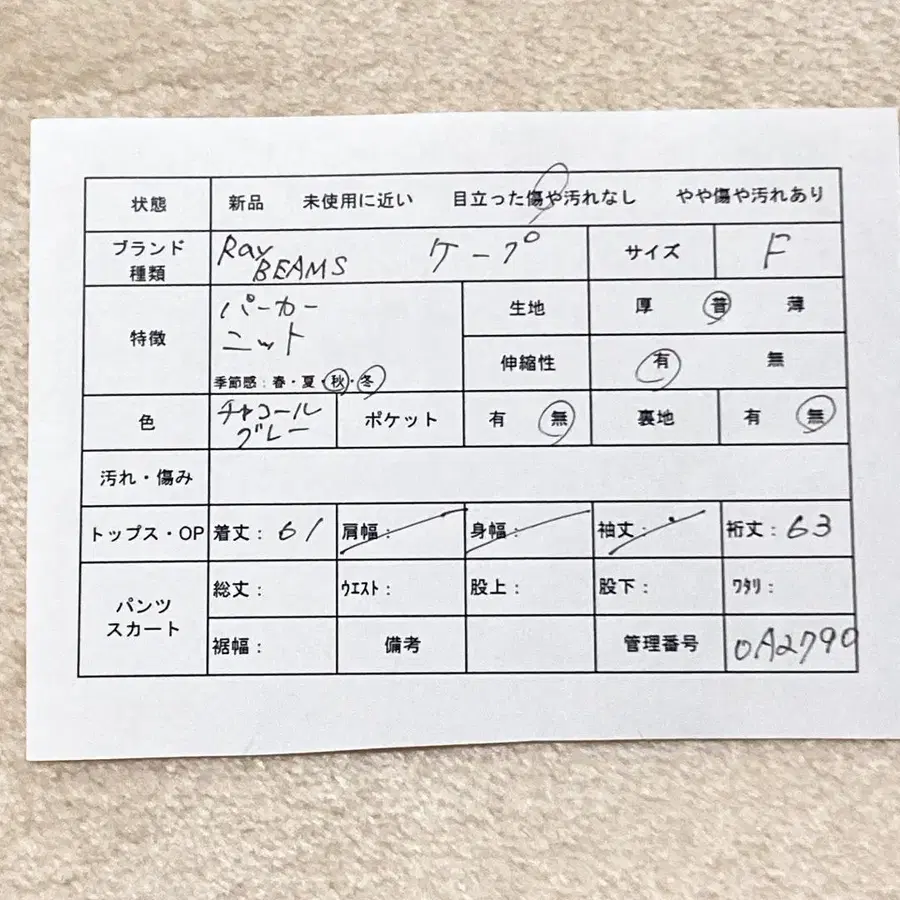 状態 新品 未使用に近い 目立った傷や汚れなし やや傷や汚れあり
ブランド 種類 Ray BEAMS ケープ サイズ F
特徴 パーカー ニット 季節感:春・夏・秋・冬
生地 厚 普 薄
伸縮性 有 無
色 チャコール グレー ポケット 有 無 裏地 有 無
汚れ・傷み
トップス・OP 着丈: 61 肩幅: 身幅: 袖丈: 裄丈: 63
パンツ スカート 総丈: ウエスト: 股上: 股下: ワタリ:
裾幅: 備考 管理番号 0A2790